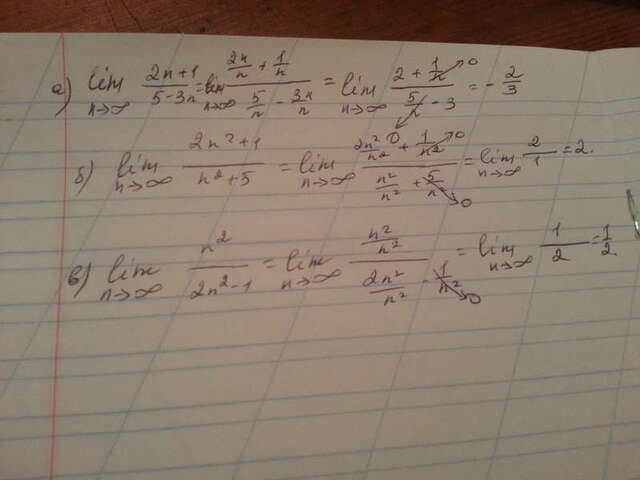 а) lim n→∞ (2n+1)/(5-3n) = lim n→∞ (2n/n + 1/n)/(5/n - 3n/n) = lim n→∞ (2 + 1/n→0)/(5/n→0 - 3) = -2/3
б) lim n→∞ (2n²+1)/(n²+5) = lim n→∞ (2n²/n² + 1/n²→0)/(n²/n² + 5/n²→0) = lim n→∞ 2/1 = 2.
в) lim n→∞ n²/(2n²-1) = lim n→∞ (n²/n²)/(2n²/n² - 1/n²→0) = lim n→∞ 1/2 = 1/2.